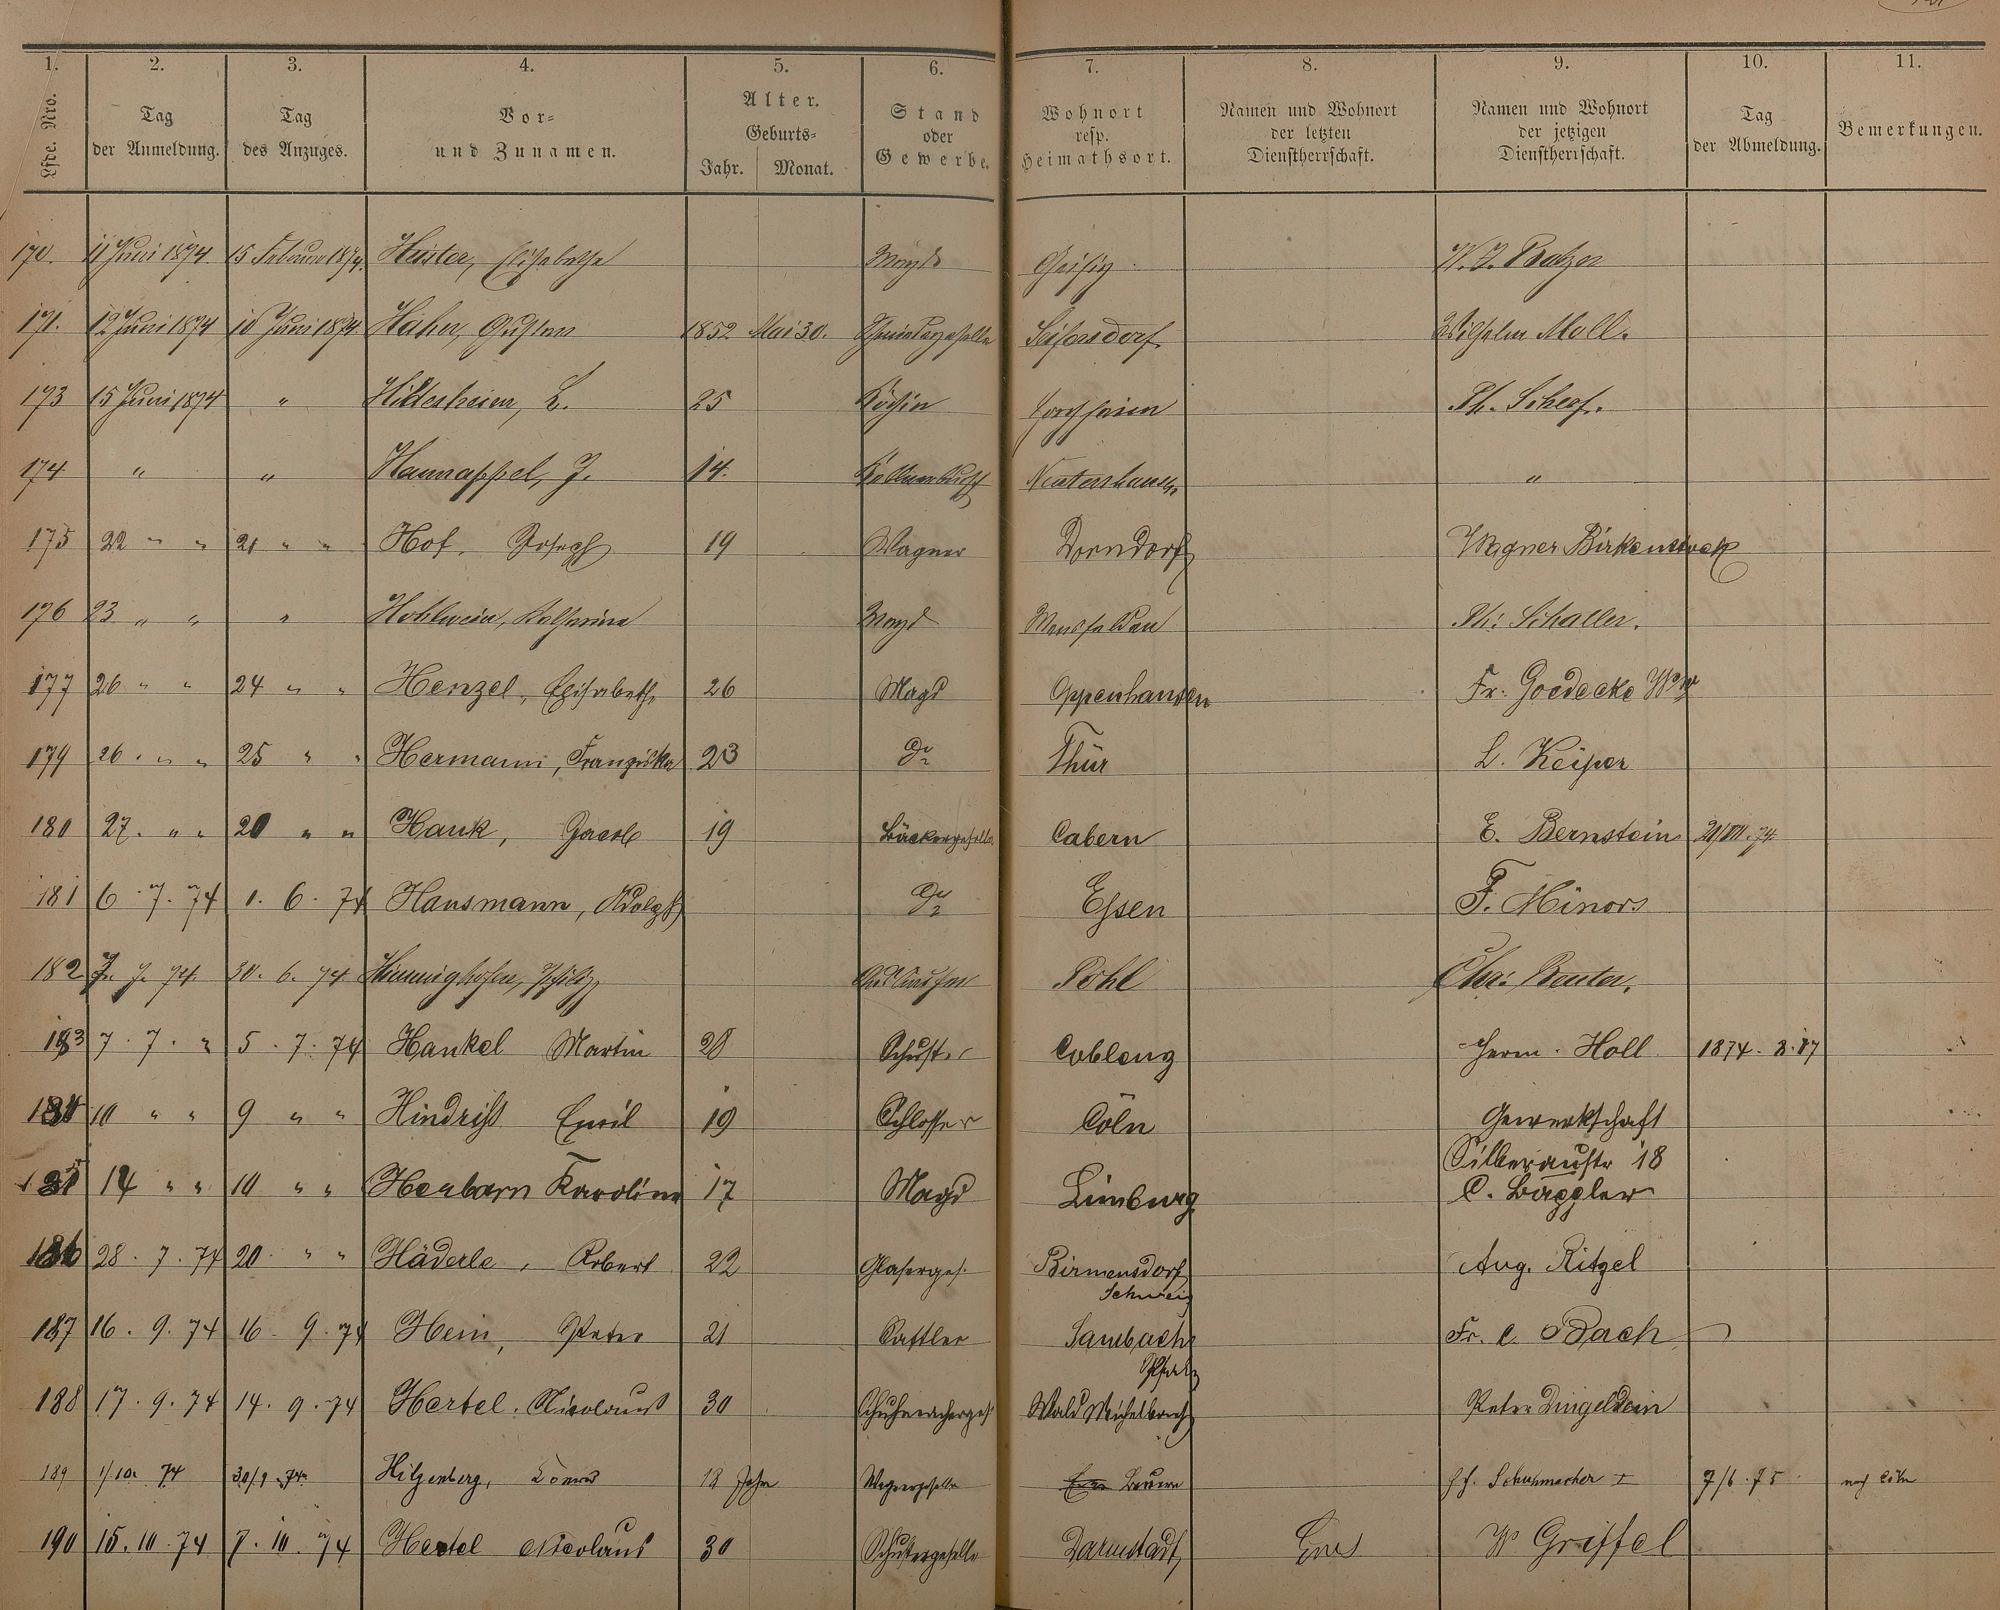 1. 2. 3. 4. 5. 6. 7. 8. 9. 10. 11.
Lfde. Nro. Tag der Anmeldung. Tag des Anzuges. Vor- und Zunamen. Alter. Geburts- Jahr. Monat. Stand oder Gewerbe. Wohnort resp. Heimathsort. Namen und Wohnort der letzten Dienstherrschaft. Namen und Wohnort der jetzigen Dienstherrschaft. Tag der Abmeldung. Bemerkungen.
170. 11 Juni 1874 15 Februar 1874. Elisabetha Magd Geisig W. J.
171. 12 Juni 1874 10 Juni 1874. Hahn, Gustav 1852 Mai 30. Seifersdorf. Wilhelm Moll.
173 15 Juni 1874 " Hildesheim, L. 25 Köchin Ph.
174 " " Hannappel, J. 14. Kellnerbursch "
175 22 " " 21 " " Hof, Joseph 19 Wagner Dorndorf Wagner Birkenstock
176 23 " " " Hohlwein, Katharina Magd Mensfelden Ph: Schaller.
177 26 " " 24 " " Henzel, Elisabeth 26 Magd Oppenhausen Fr. Goedecke Ww
179 26 " " 25 " " Hermann, Franziska 23 do Thür L. Keiper
180 27. " " 20 " " Hauk, Jacob 19 Bäckergeselle Cabern E. Bernstein 21/VII. 74
181 6 . 7 . 74 1 . 6 . 74 Hausmann, Adolph do Essen F. Minors
182 7. 7. 74 30. 6. 74 Himmighofen, Philipp Pohl Chr: Reuter.
183 7 . 7 . " 5 . 7 . 74 Hankel Martin 28 Schuster Coblenz Herm. Holl 1874. 8. 17
184 10 " " 9 " " Emil 19 Schlosser Cöln Gewerkschaft
Silberaustr 18
185 14 " " 10 " " Herbarn Karoline 17 Magd Limburg C. Bäppler
186 28 . 7 . 74 20 . " " Häderle, Robert 22 Glaserges. Birmensdorf Aug. Ritzel
Schweiz
187 16 . 9 . 74 16 . 9 . 74 Hein, Peter 21 Sattler Sambach Fr. C. Bach
Pfalz
188 17 . 9 . 74 14 . 9 . 74 Hertel, Nicolaus 30 Schuhmacherges. Wald Michelbach Peter Dingeldein
189 1/10. 74 30/9. 74 Hilgenberg, 18 Jahre Wagnergeselle Schuhmacher 7/6. 75 nach Cöln
190 15. 10. 74 7. 10. 74 Hertel Nicolaus 30 Schustergeselle Darmstadt Ems W Griffel